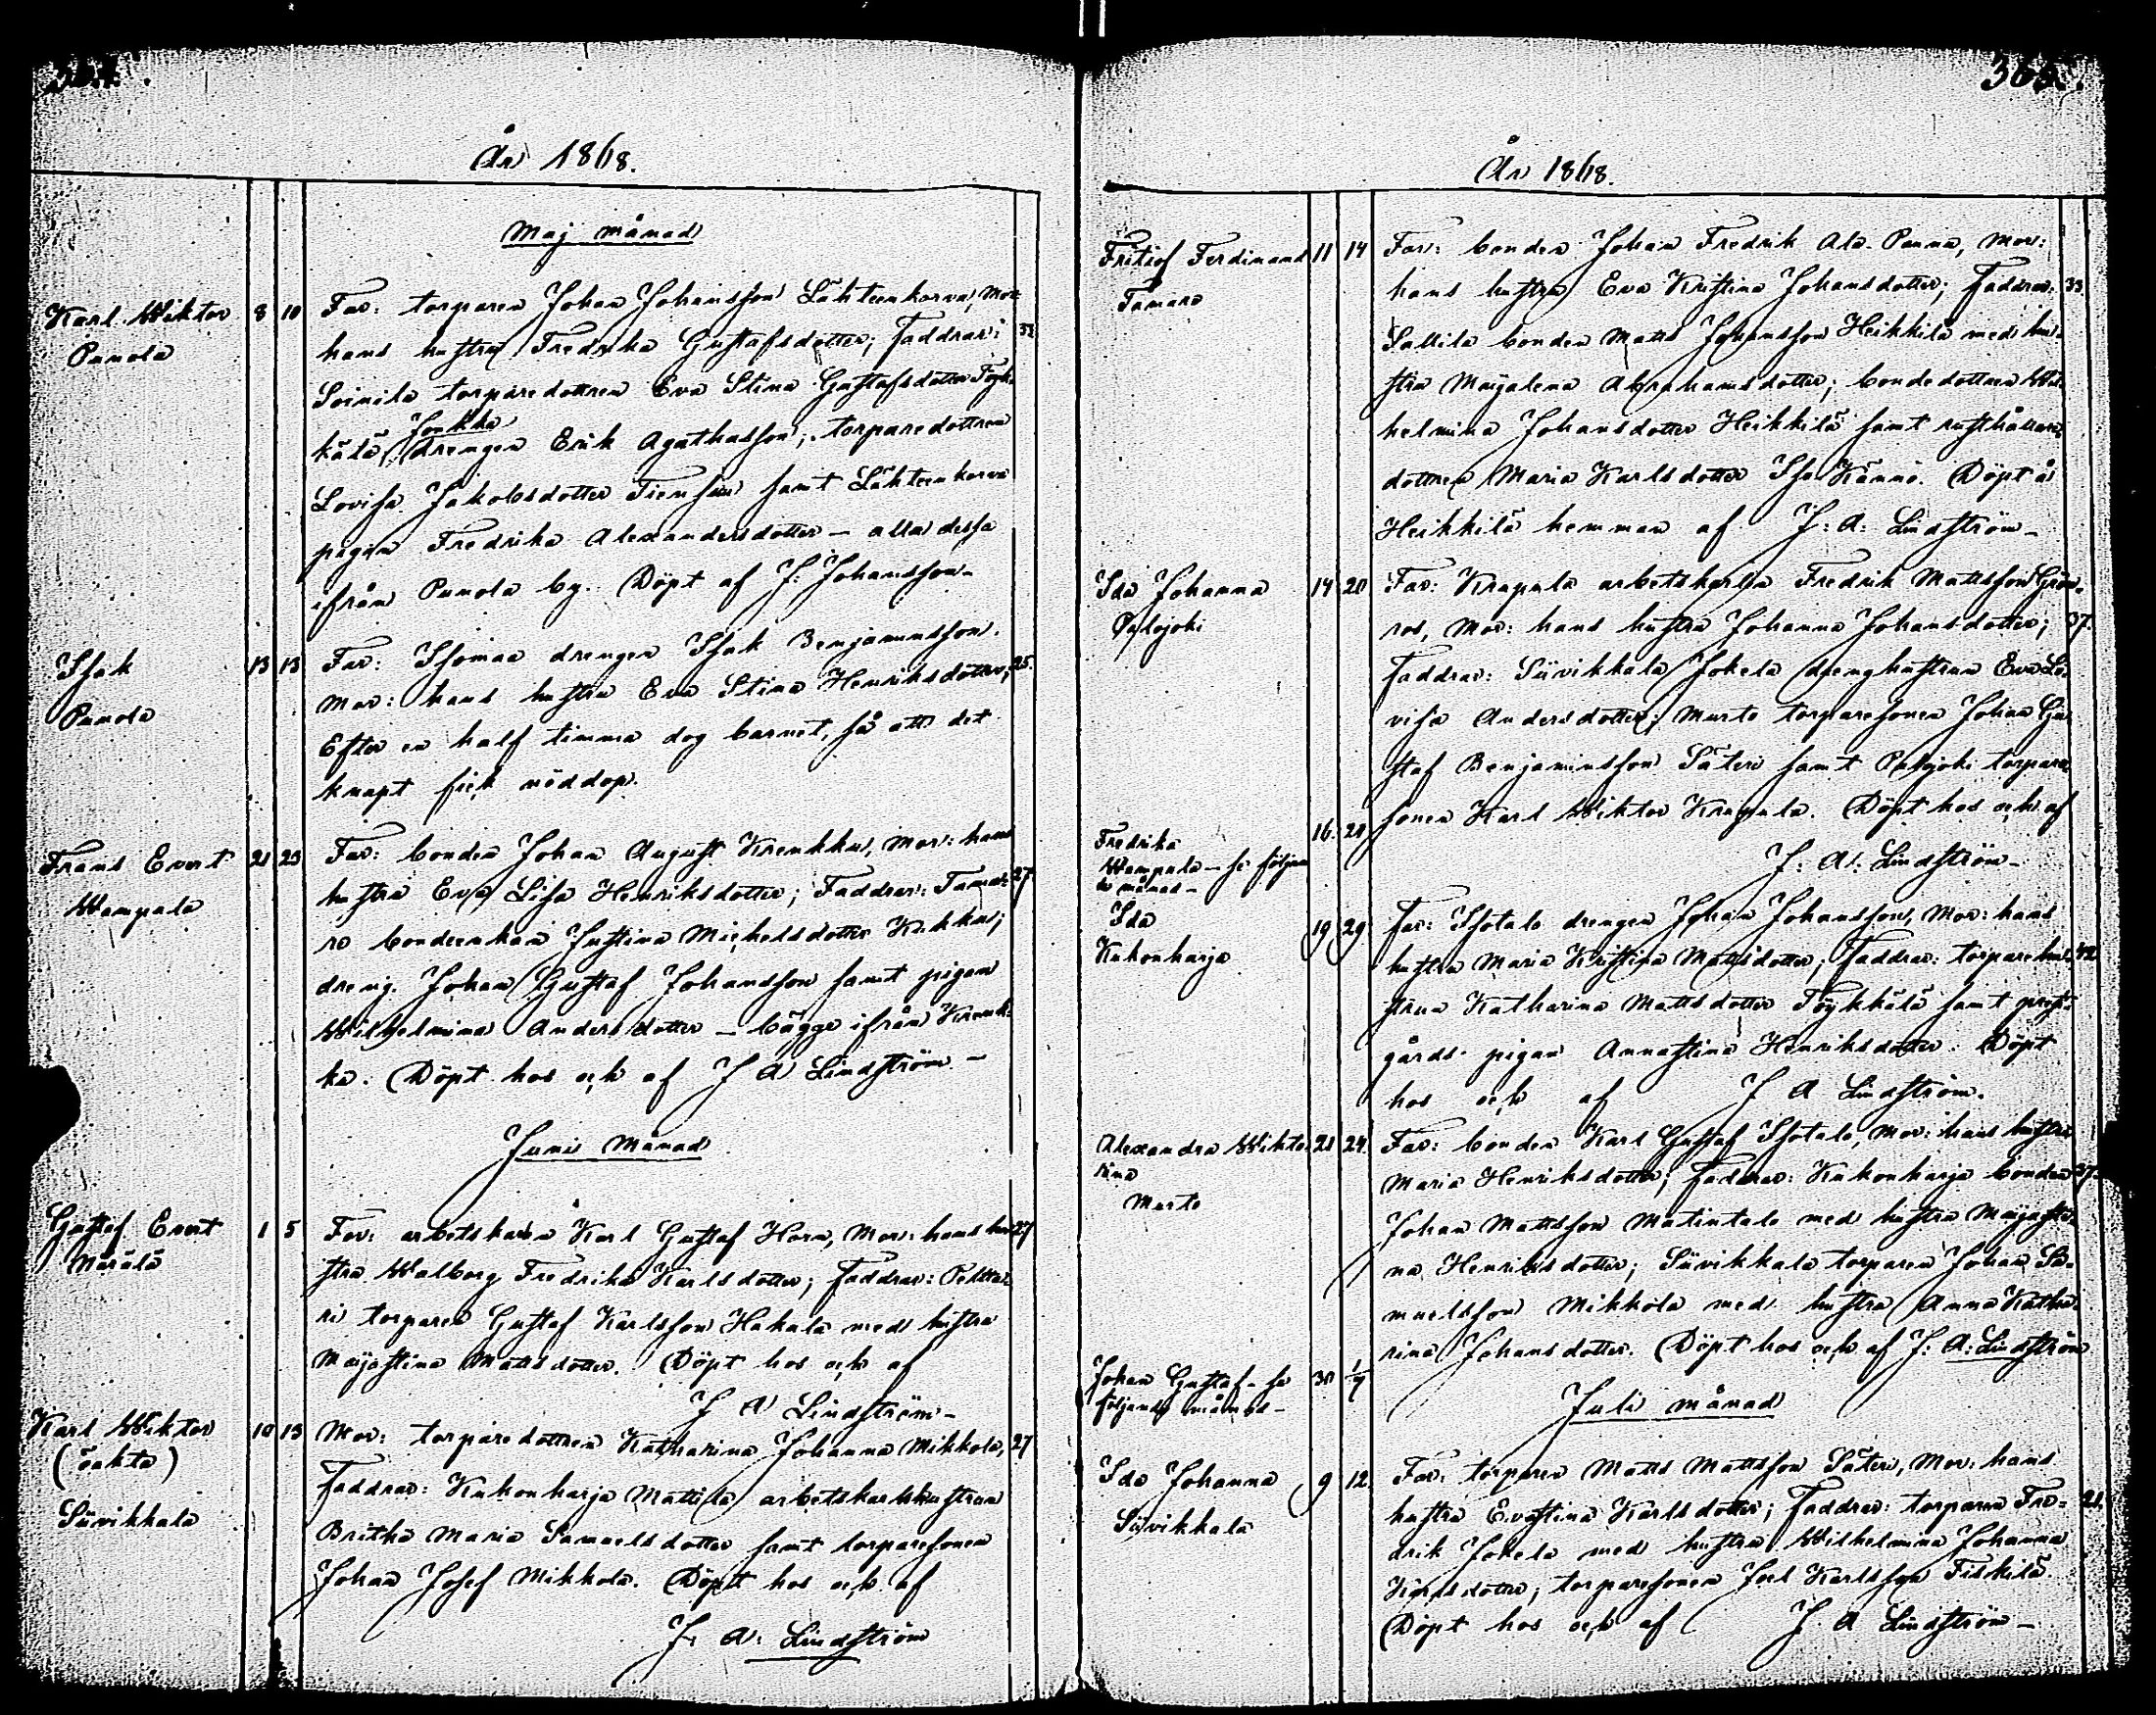 År 1868.
Maj månad
Karl Wiktor 8 10 Far: torparen Johan Johansson Lähteenkorva, Mor:
Punola hans hustru Fredrika Gustafsdotter; Faddrar: 33
Soinila torparedottren Eva Stina Gustafsdotter Töyk-
Jonkka
kälä, drengen Erik Agathasson; torparedottren
Lovisa Jakobsdotter samt Lähteenkorva
pigan Fredrika Alexandersdotter — alla dessa
ifrån Punola by. Döpt af J: Johansson.
Isak 13 13 Far: Isomaa drengen Isak Benjaminsson.
Punola Mor: hans hustru Eva Stina Henriksdotter; 25.
Efter en half timma dog barnet, så att det
knapt fick nöddop.
Frans Evert 21 23 Far: bonden Johan August Krenkku, Mor: hans
Wampula hustru Eva Lisa Henriksdotter; Faddrar: Tama- 27
ro bondeenkan Justina Michelsdotter
dreng. Johan Gustaf Johansson samt pigan
Wilhelmina Andersdotter — bägge ifrån Krenk-
ka. Döpt hos och af J A Lindström —
Juni Månad
Gustaf Evert 1 5 Far: arbetskarlen Karl Gustaf Horn, Mor: hans hu- 27
Murälä stru Walborg Fredrika Karlsdotter; Faddrar: Peltta-
ri torparen Gustaf Karlsson Hakala med hustru
Majastina Mattsdotter. Döpt hos och af
J A Lindström —
Karl Wiktor 10 13 Mor: torparedottren Katharina Johanna Mikkola, 27
(oäkta) Faddrar: Kukonharja Mattila arbetskarlshustrun
Siivikkala Britha Maria Samuelsdotter samt torparesonen
Johan Josef Mikkola. Döpt hos och af
J: A: Lindström
365.
År 1868.
Fritiof Ferdinand 11 14 Far: bonden Johan Fredrik Ala-Panna, Mor:
Tamaro hans hustru Eva Kristina Johansdotter; Faddrar: 33.
Sallila bonden Matts Johansson Heikkilä med hu-
stru Majalena Abrahamsdotter; bondedottren Wil-
helmina Johansdotter Heikkilä samt rusthållare-
dottren Maria Karlsdotter Iso Kännö. Döpt å
Heikkilä hemman af J: A: Lindström —
Ida Johanna 14 20 Far: Krapula arbetskarlen Fredrik Mattsson Grön-
Palojoki ros, Mor: hans hustru Johanna Johansdotter; 37.
Faddrar: Siivikkala Jokela drenghustrun Eva Lo-
visa Andersdotter; Murto torparesonen Johan Gu-
staf Benjaminsson Säteri samt Palojoki torpare-
sonen Karl Wiktor Krapula. Döpt hos och af
Fredrika 16. 20
J: A: Lindström —
Wampula — se följan-
de månad —
Ida 19 29 Far: Isotalo drengen Johan Johansson, Mor: hans
Kukonharja hustru Maria Kristina Mattsdotter; Faddrar: torparehu- 42
strun Katharina Mattsdotter Töykkälä samt prest-
gårds pigan Annastina Henriksdotter. Döpt
hos och af J A Lindström.
Alexandra Wikto- 21 24. Far: bonden Karl Gustaf Isotalo, Mor: hans hustru
rina Maria Henriksdotter; Faddrar: Kukonharja bonden 37.
Murto Johan Mattsson Matintalo med hustru Majasti-
na Henriksdotter; Siivikkala torparen Johan Sa-
muelsson Mikkola med hustru Anna Katha-
rina Johansdotter. Döpt hos och af J: A: Lindström
Johan Gustaf — se 30 1/7
följande månad —
Juli månad
Ida Johanna 9 12. Far: torparen Matts Mattsson Säteri, Mor: hans
Siivikkala hustru Evastina Karlsdotter; Faddrar: torparen Fre- 21.
drik Jokela med hustru Wilhelmina Johanna
Karlsdotter; torparesonen Joel Karlsson Fiskilä.
Döpt hos och af J. A Lindström —